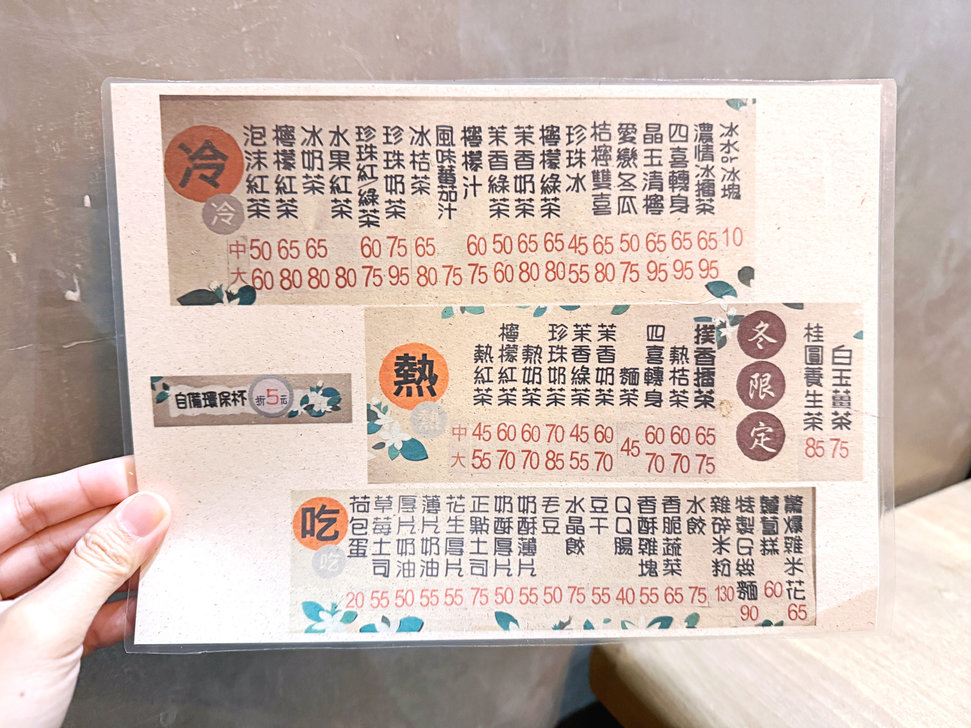 冷
冷
泡沫紅茶
檸檬紅茶
冰奶茶
水果紅茶
珍珠紅/綠茶
珍珠奶茶
冰桔茶
風味蕃茄汁
檸檬汁
茉香綠茶
茉香奶茶
檸檬綠茶
珍珠冰
桔檸雙喜
愛戀冬瓜
晶玉清檸
四喜轉身
濃情冰擂茶
冰水or冰塊
中 50 65 65 60 75 65 60 50 65 65 45 65 50 65 65 65 10
大 60 80 80 80 75 95 80 75 75 60 80 80 55 80 75 95 95 95
自備環保杯 折5元
熱
熱
熱紅茶
檸檬紅茶
熱奶茶
珍珠奶茶
茉香綠茶
茉香奶茶
麵茶
四喜轉身
熱桔茶
撲香擂茶
中 45 60 60 70 45 60 45 60 60 65
大 55 70 70 85 55 70 70 70 75
冬限定
桂圓養生茶
白玉薑茶
85 75
吃
吃
荷包蛋
草莓土司
厚片奶油
薄片奶油
花生厚片
正點土司
奶酥厚片
奶酥薄片
毛豆
水晶餃
豆干
QQ腸
香酥雞塊
香脆蔬菜
水餃
雜碎米粉
特製G絲麵
蘿蔔糕
驚爆雞米花
20 55 50 55 55 75 50 55 50 75 55 40 55 65 75 130 90 60 65